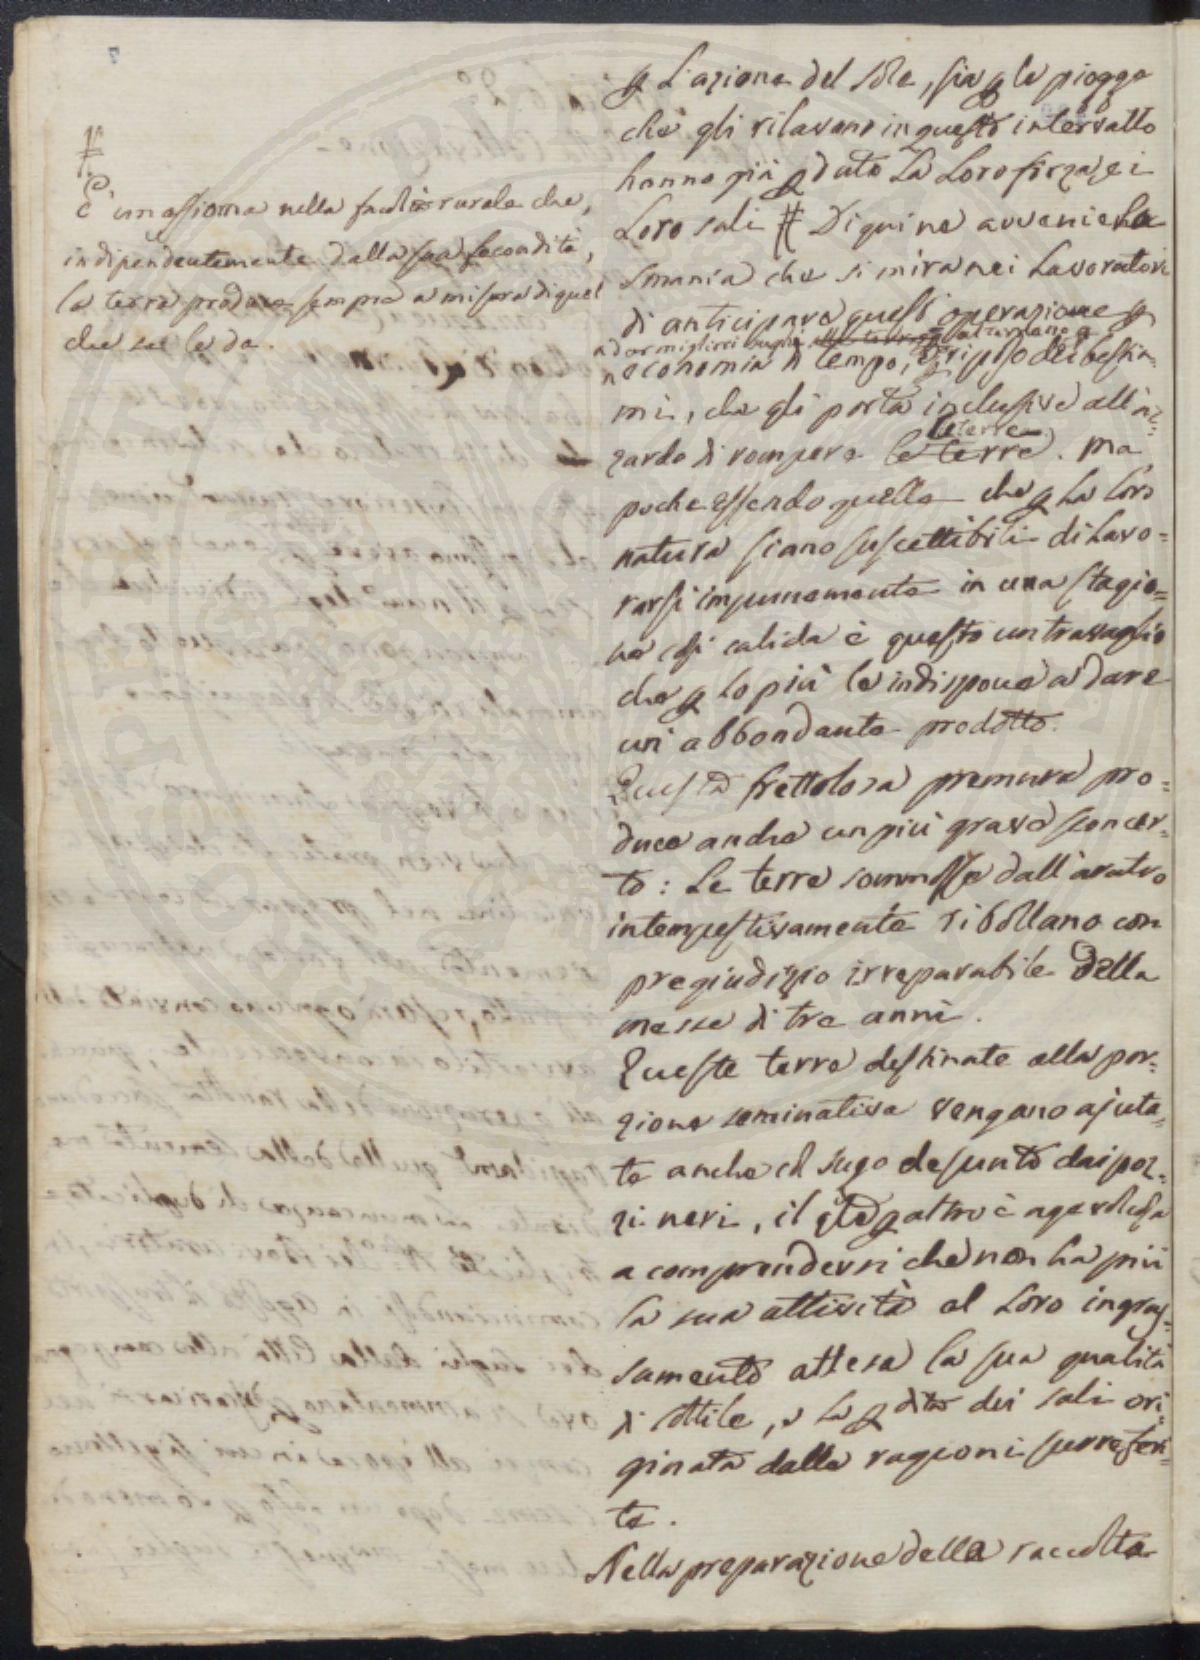 #
È un assioma nella facoltà rurale che,
indipendentemente dalla sua fecondità,
la terra produce sempre a misura di quel
che se le da.
ꝑ L'azione del sole, sia ꝑ le piogge
che gli rilavano in questo intervallo
hanno già ꝑduto La Loro forza, e i
Loro sali # Di qui ne avviene La
smania che si mira nei Lavoratori
di anticipare quest'operazione ꝑ
economia di tempo, riposo dei bestia-
mi, che gli porta inclusive all'az-
zardo di rompere le terre
le terre. Ma
poche essendo quelle che ꝑ La loro
natura siano suscettibili di Lavo=
rarsi impunemente in una stagio=
ne così calida è questo un travaglio
che ꝑ Lo più le indispone a dare
un abbondante prodotto.
Questa frettolosa premura pro=
duce anche un più grave sconcer-
to: Le terre sommosse dall'aratro
intempestivamente ribollano con
pregiudizio irreparabile della
messe di tre anni.
Queste terre destinate alla por-
zione seminativa vengano ajuta=
te anche col sugo desunto dai poz=
zi neri, il ꝑ altro è agevole
a comprendersi che non ha più
la sua attività al Loro ingras-
samento attesa la sua qualità
di sottile, e La ꝑdita dei sali ori-
ginata dalle ragioni surreferi-
te.
Nella preparazione della raccolta